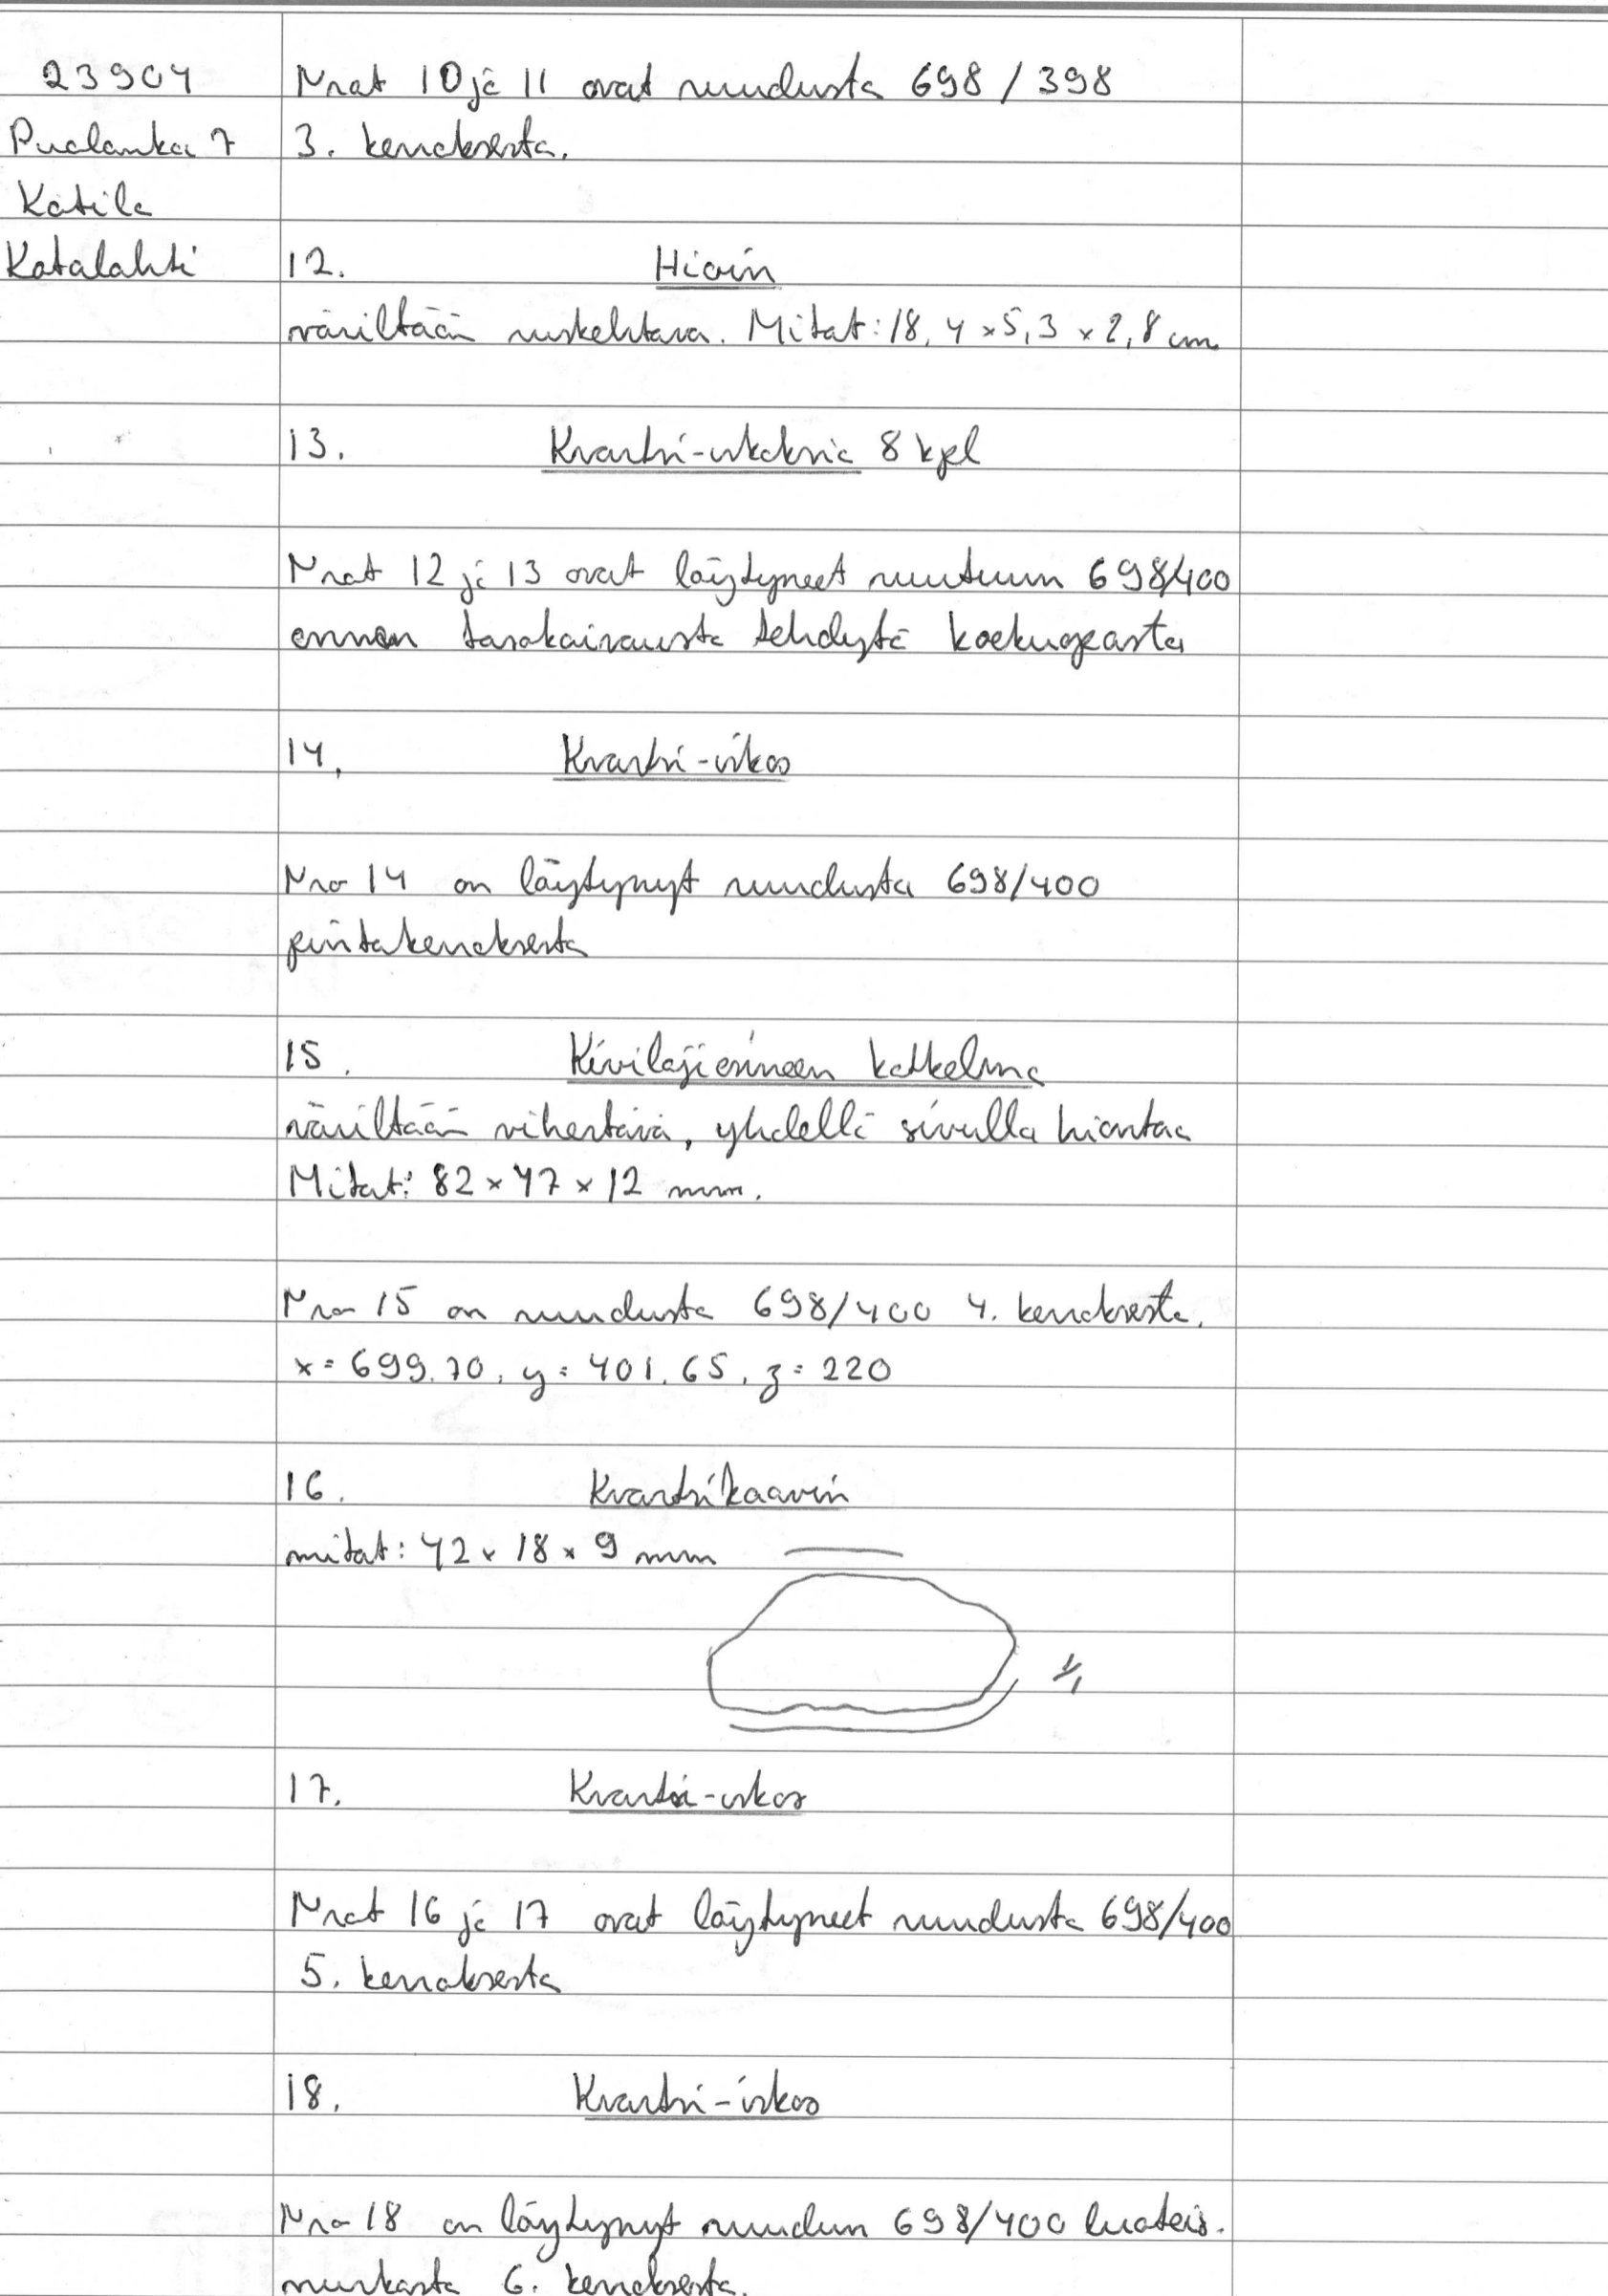 23904
Puolanka 7
Kotila
Katalahti
Nrot 10 ja 11 ovat ruudusta 698 / 398
3. kerroksesta.
12. Hioin
väriltään ruskehtava. Mitat: 18,4 × 5,3 × 2,8 cm.
13. Kvartsi-iskoksia 8 kpl
Nrot 12 ja 13 ovat löytyneet ruutuun 698/400
ennen tasokaivausta tehdystä koekuopasta
14. Kvartsi-iskos
Nro 14 on löytynyt ruudusta 698/400
pintakerroksesta
15. Kivilajiesineen katkelma
väriltään vihertävä, yhdellä sivulla hiontaa
Mitat: 82 × 47 × 12 mm.
Nro 15 on ruudusta 698/400 4. kerroksesta.
x = 699.70, y = 401.65, z = 220
16. Kvartsikaavin
mitat: 42 × 18 × 9 mm
1/1
17. Kvartsi-iskos
Nrot 16 ja 17 ovat löytyneet ruudusta 698/400
5. kerroksesta
18. Kvartsi-iskos
Nro 18 on löytynyt ruudun 698/400 luoteis-
nurkasta 6. kerroksesta.